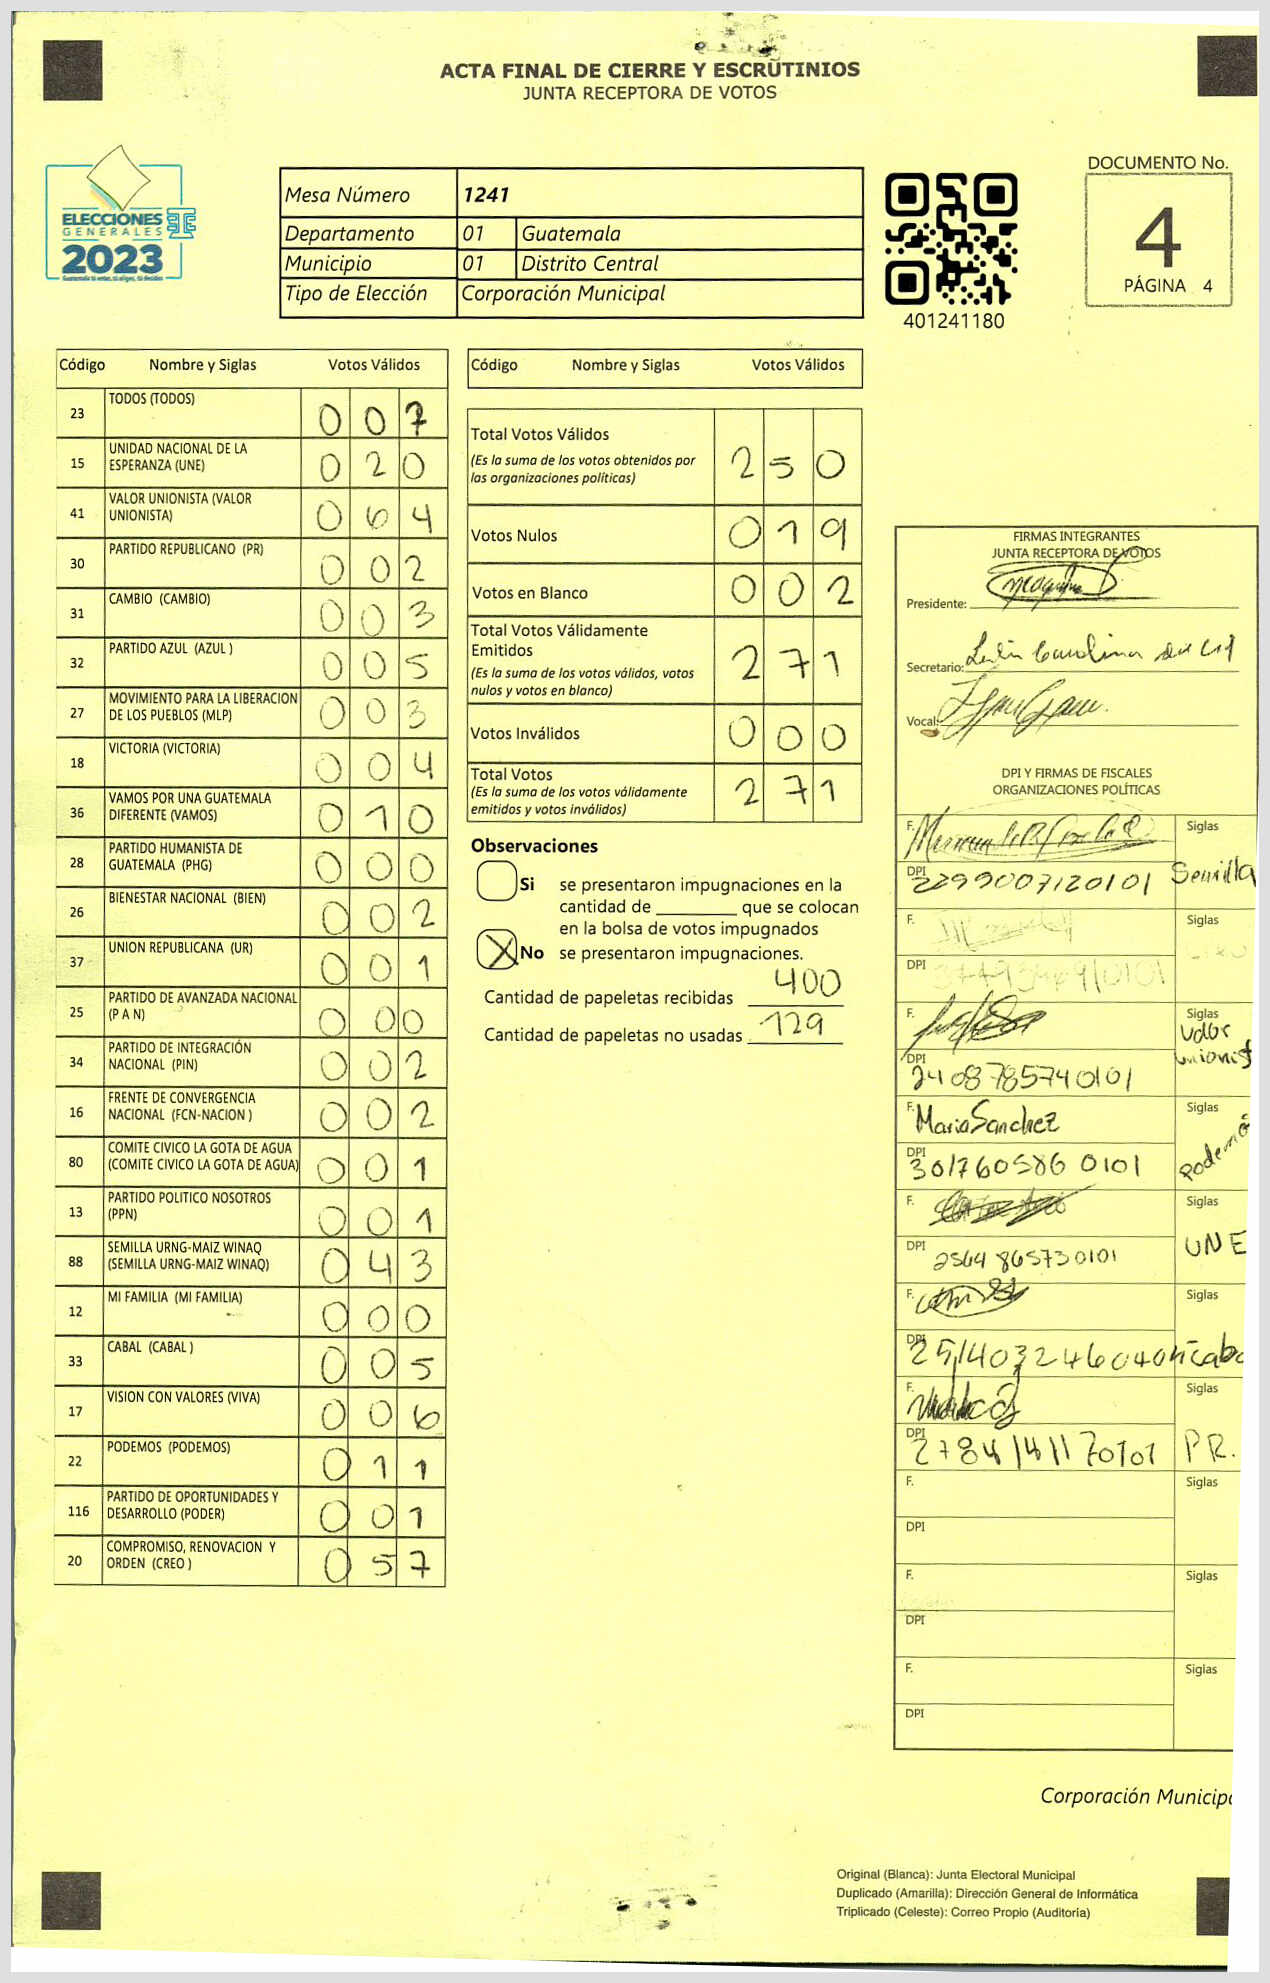 ACTA FINAL DE CIERRE Y ESCRUTINIOS
JUNTA RECEPTORA DE VOTOS
ELECCIONES
GENERALES
2023
Mesa Número 1241
Departamento 01 Guatemala
Municipio 01 Distrito Central
Tipo de Elección Corporación Municipal
401241180
DOCUMENTO No.
4
PÁGINA 4
Código Nombre y Siglas Votos Válidos
23 TODOS (TODOS) 0 0 7
15 UNIDAD NACIONAL DE LA
ESPERANZA (UNE) 0 2 0
41 VALOR UNIONISTA (VALOR
UNIONISTA) 0 6 4
30 PARTIDO REPUBLICANO (PR) 0 0 2
31 CAMBIO (CAMBIO) 0 0 3
32 PARTIDO AZUL (AZUL ) 0 0 5
27 MOVIMIENTO PARA LA LIBERACION
DE LOS PUEBLOS (MLP) 0 0 3
18 VICTORIA (VICTORIA) 0 0 4
36 VAMOS POR UNA GUATEMALA
DIFERENTE (VAMOS) 0 1 0
28 PARTIDO HUMANISTA DE
GUATEMALA (PHG) 0 0 0
26 BIENESTAR NACIONAL (BIEN) 0 0 2
37 UNION REPUBLICANA (UR) 0 0 1
25 PARTIDO DE AVANZADA NACIONAL
(P A N) 0 0 0
34 PARTIDO DE INTEGRACIÓN
NACIONAL (PIN) 0 0 2
16 FRENTE DE CONVERGENCIA
NACIONAL (FCN-NACION ) 0 0 2
80 COMITE CIVICO LA GOTA DE AGUA
(COMITE CIVICO LA GOTA DE AGUA) 0 0 1
13 PARTIDO POLITICO NOSOTROS
(PPN) 0 0 1
88 SEMILLA URNG-MAIZ WINAQ
(SEMILLA URNG-MAIZ WINAQ) 0 4 3
12 MI FAMILIA (MI FAMILIA) 0 0 0
33 CABAL (CABAL ) 0 0 5
17 VISION CON VALORES (VIVA) 0 0 6
22 PODEMOS (PODEMOS) 0 1 1
116 PARTIDO DE OPORTUNIDADES Y
DESARROLLO (PODER) 0 0 1
20 COMPROMISO, RENOVACION Y
ORDEN (CREO ) 0 5 7
Código Nombre y Siglas Votos Válidos
Total Votos Válidos
(Es la suma de los votos obtenidos por
las organizaciones políticas) 2 5 0
Votos Nulos 0 1 9
Votos en Blanco 0 0 2
Total Votos Válidamente
Emitidos
(Es la suma de los votos válidos, votos
nulos y votos en blanco) 2 7 1
Votos Inválidos 0 0 0
Total Votos
(Es la suma de los votos válidamente
emitidos y votos inválidos) 2 7 1
Observaciones
Si se presentaron impugnaciones en la
cantidad de ________ que se colocan
en la bolsa de votos impugnados
X No se presentaron impugnaciones.
Cantidad de papeletas recibidas 400
Cantidad de papeletas no usadas 129
FIRMAS INTEGRANTES
JUNTA RECEPTORA DE VOTOS
Presidente:
Secretario: Carolina
Vocal:
DPI Y FIRMAS DE FISCALES
ORGANIZACIONES POLÍTICAS
F. Siglas
DPI 2299007120101 Semilla
F. Siglas
DPI
F. Siglas
Valor
Unionist
DPI 2408785740101
F. Maria Sanchez Siglas
DPI 301760586 0101 Podemos
F. Siglas
DPI 2564 865730101 UNE
F. Siglas
DPI
F. Siglas
DPI PR.
F. Siglas
DPI
F. Siglas
DPI
F. Siglas
DPI
Corporación Municip
Original (Blanca): Junta Electoral Municipal
Duplicado (Amarilla): Dirección General de Informática
Triplicado (Celeste): Correo Propio (Auditoría)